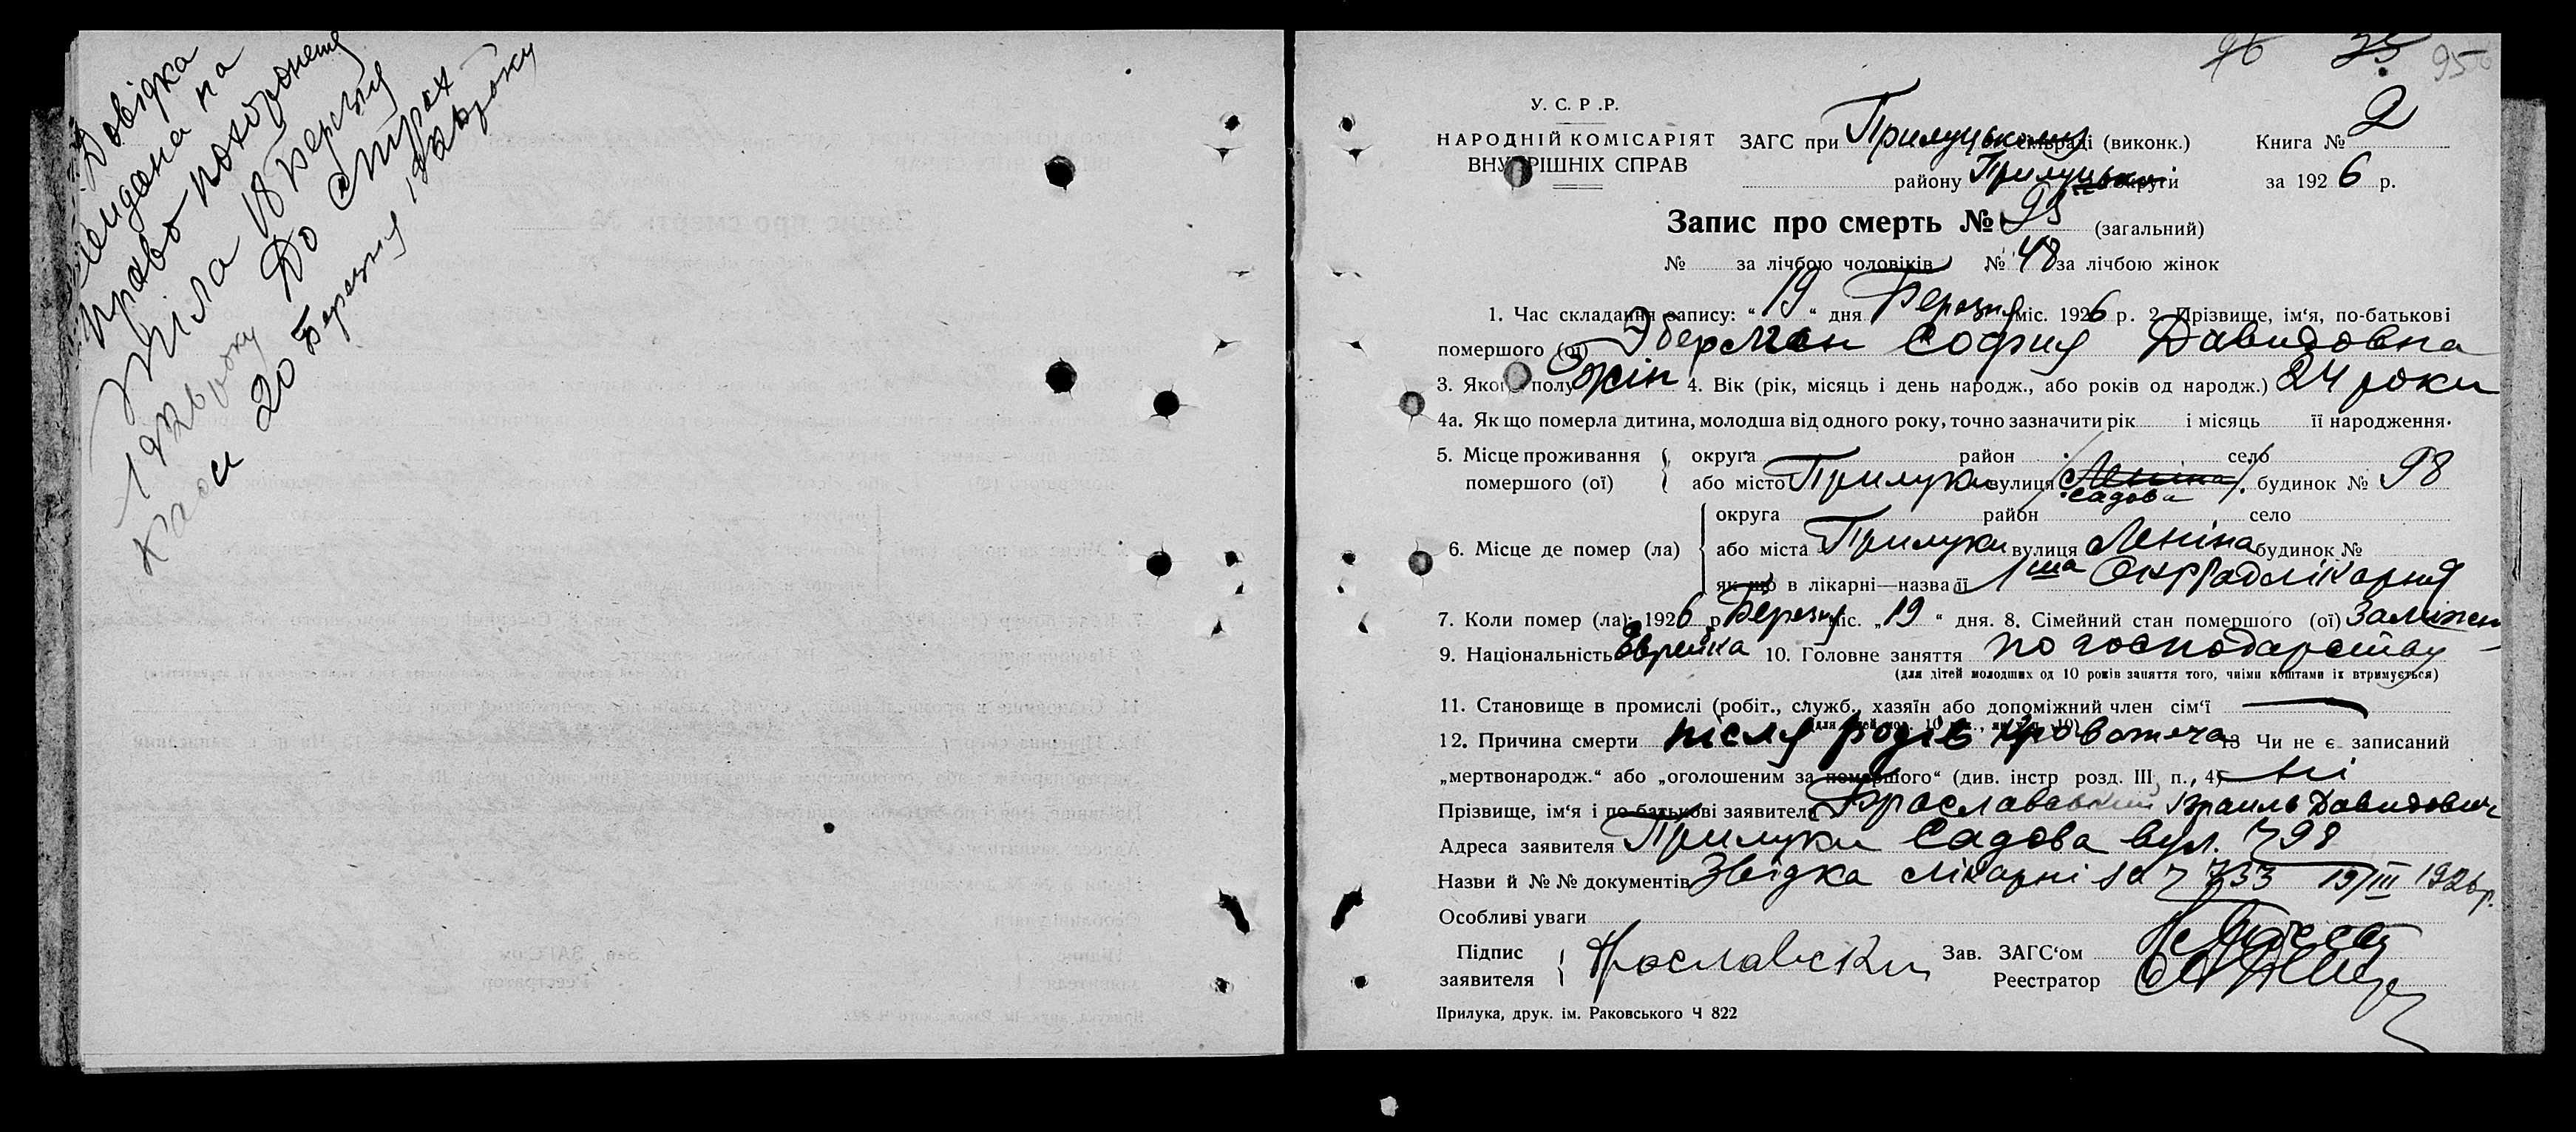 Довідка
видана на
право похоронення
тіла 18 березня
1926 року
До страх
каси 20 Березня 1926 року
96 95 95
У. С. Р. Р.
НАРОДНІЙ КОМІСАРІЯТ
ВНУТРІШНІХ СПРАВ
ЗАГС при Прилуцькому сільраді (виконк.) Книга № 2
району Прилуцької округи за 1926 р.
Запис про смерть № 95 (загальний)
№ за лічбою чоловіків № 48 за лічбою жінок
1. Час складання запису: “ 19 “ дня Березня міс. 1926 р. 2. Прізвище, ім‘я, по-батькові
помершого (ої) Эберман София Давидовна
3. Якого полу жін 4. Вік (рік, місяць і день народж., або років од народж.) 24 роки
4а. Як що померла дитина, молодша від одного року, точно зазначити рік і місяць її народження.
5. Місце проживання помершого (ої) округа район село
або місто Прилуки вулиця Леніна Садова будинок № 98
6. Місце де помер (ла) округа район село
або міста Прилуки вулиця Леніна будинок №
як що в лікарні—назва її 1ша Окррадлікарня
7. Коли помер (ла): 1926 р. Березня міс. „ 19 “ дня. 8. Сімейний стан помершого (ої) Заміжня
9. Національність Еврейка 10. Головне заняття по господарству
(для дітей молодших од 10 років заняття того, чиїми коштами їх втримується)
11. Становище в промислі (робіт., служб., хазяїн або допоміжний член сім‘ї —
12. Причина смерти після родів кровотеча 13 Чи не є записаний
„мертвонародж.“ або „оголошеним за помершого“ (див. інстр розд. III п., 4) ні
Прізвище, ім‘я і по-батькові заявителя Браславский Израиль Давидович
Адреса заявителя Прилуки Садова вул. № 98
Назви й №№ документів Звідка лікарні за № 733 19/III 1926 р.
Особливі уваги
Підпис заявителя Браславский
Зав. ЗАГС‘ом
Реестратор
Прилука, друк. ім. Раковського Ч 822